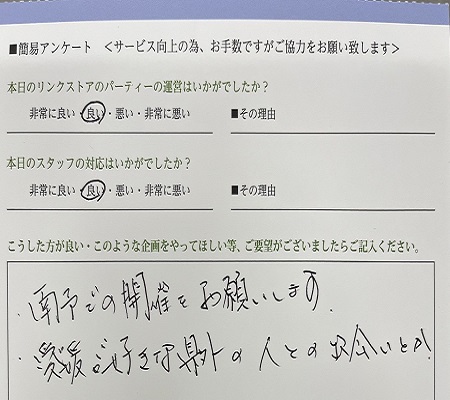 ■簡易アンケート <サービス向上の為、お手数ですがご協力をお願い致します>
本日のリンクストアのパーティーの運営はいかがでしたか?
非常に良い・良い・悪い・非常に悪い ■その理由
本日のスタッフの対応はいかがでしたか?
非常に良い・良い・悪い・非常に悪い ■その理由
こうした方が良い・このような企画をやってほしい等、ご要望がございましたらご記入ください。
・南予での開催をお願いします.
・愛媛が好きな県外の人との出会いとか!